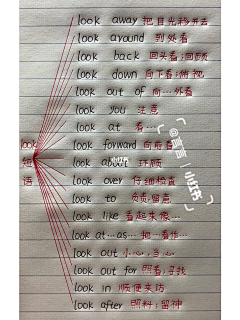 look away 把目光移开去
look around 到处看
look back 回头看;回顾
look down 向下看;俯视
look out of 向…外看
look you 注意
look at 看…
look forward 向前看
look about 环顾
look over 仔细检查
look to 负责;留意
look like 看起来像…
look at…as… 把…看作…
look out 小心;当心
look out for 照看;寻找
look in 顺便来访
look after 照料;留神
look
短
语
小红书